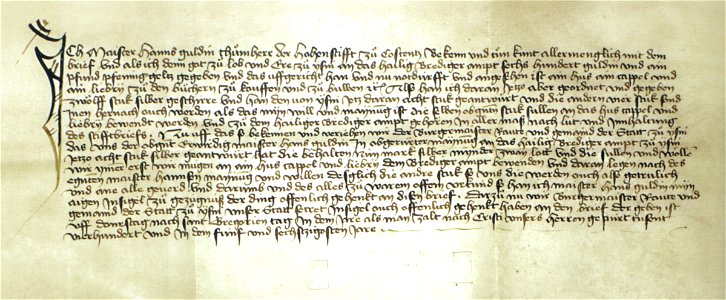 Ich Maister Hanns guldin thůmherr der Hohenstifft zů Costentz Bekenn und tůn kunt allermenglich mit dem
brief Und als ich dem got zů lob und Ere zů ysni an das hailig Brediger ampt sechs hundert guldin und ain
pfund pfennig geltz gegeben und das uffgericht han und nu notdurfft und angesehen ist ain hus ain cappel und
ain liebry zů den bůchern zů kouffen und zů buwen Also han ich darain Jetzo aber geordnet und gegeben
zwölff stuk silber geschirrs Und han den von ysni Jetz daran acht stuk geantwürt und die andern vier stuk sind
hernach ouch werden als das min will und mainung ist die selben obgnn stuk sullen an das hus cappel und
liebry bewendt werden Und zů dem hailigen Brediger ampt gehören In aller mas nach lut und Inhaltung
des stifftbriefs Und uff das so bekennen und veriehen wir der Burgermaister Raute und gemaind der Statt zů ysni
das uns der obgnt Erwirdig maister Hanns guldin In obgerürter mainung an das hailig Brediger ampt zů ysni
Jetzo acht stuk silber geantwürt hat die behalten Nun mark silber minder zway lott Und die sullen und wellen
wir ymer erst wir mugen an ain hus cappel und liebry dem Brediger ampt bewenden Und daran legen nach des
egnten maister Hannsen mainung Und wöllen desglich die andre stuk so uns die werden ouch also getrulich
und ane alle geverd Und darumb und des alles zů warem offem urkund so han ich maister Hans guldin min
aigen Insigel zů gezugnüß der ding offenlich gehenkt an disen brief Darzů wir Burgermaister Raute und
gemaind der Statt zů ysni unser Statt secret Insigel ouch offenlich gehenkt haben an den brief der geben ist
uff donrstag nach sant Gregorien tag In dem Jre als man zalt nach Cristi unsers herren gepurt tusent
vierhundert und In dem fünf und sechtzigesten Jre